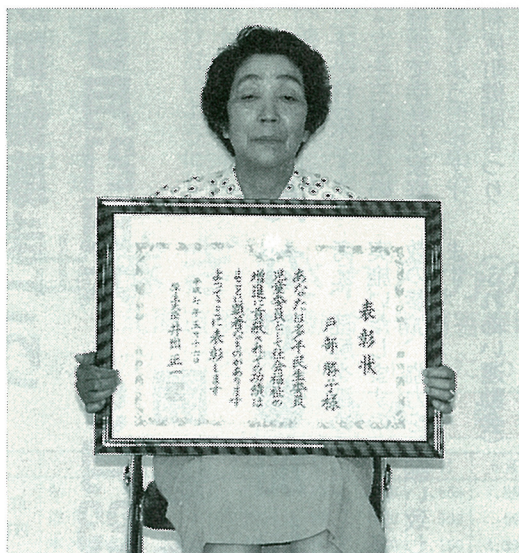 表彰状
戸部勝子様
あなたは多年民生委員
児童委員として社会福祉の
増進に貢献されその功績は
まことに顕著なものがあります
よってここに表彰します
平成六年五月十六日
厚生大臣 井出正一